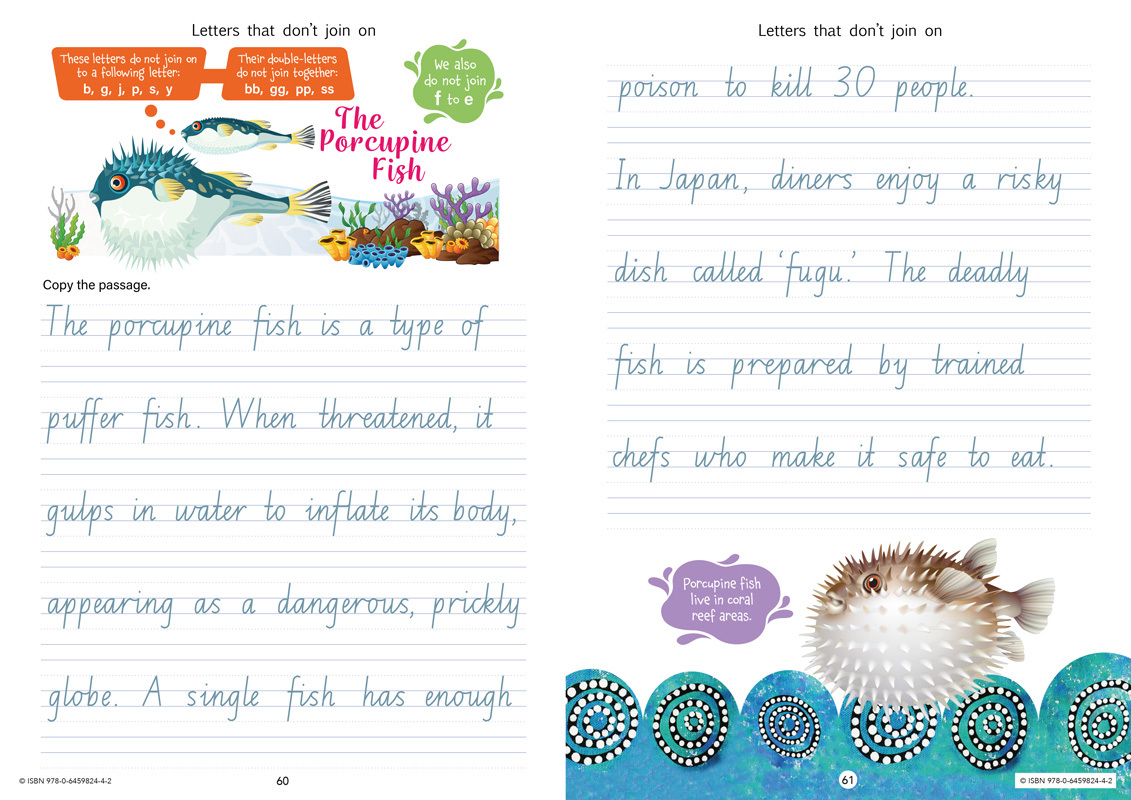 Letters that don't join on
These letters do not join on
to a following letter:
b, g, j, p, s, y
Their double-letters
do not join together:
bb, gg, pp, ss
We also
do not join
f to e
The
Porcupine
Fish
Copy the passage.
The porcupine fish is a type of
puffer fish. When threatened, it
gulps in water to inflate its body,
appearing as a dangerous, prickly
globe. A single fish has enough
© ISBN 978-0-6459824-4-2
60
Letters that don't join on
poison to kill 30 people.
In Japan, diners enjoy a risky
dish called 'fugu.' The deadly
fish is prepared by trained
chefs who make it safe to eat.
Porcupine fish
live in coral
reef areas.
61
© ISBN 978-0-6459824-4-2